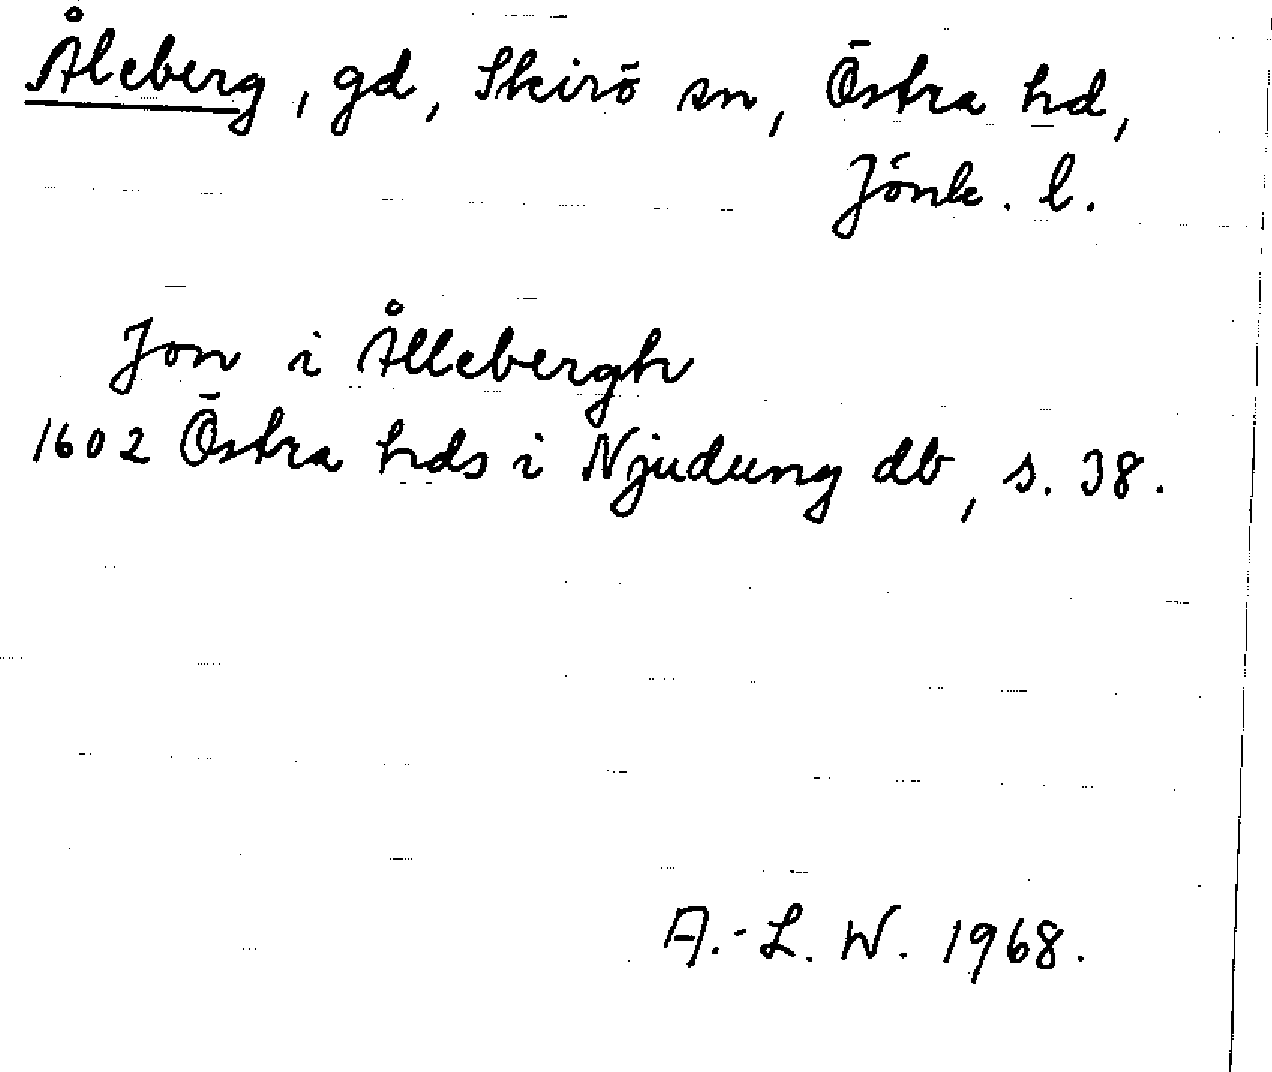 Åleberg, gd, Skirö sn, Östra hd,
Jönk. l.
Jon i Ållebergh
1602 Östra hds i Njudung db, s. 38.
A.-L. W. 1968.